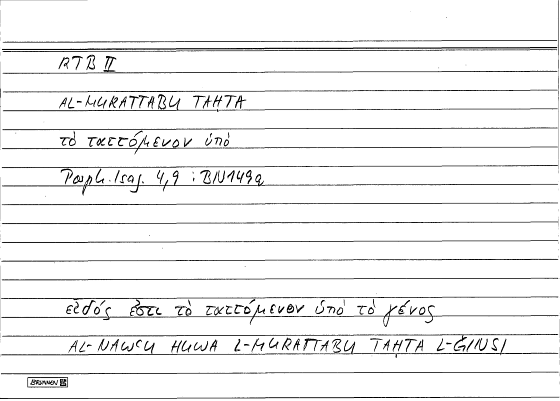 RTB II
AL-MURATTABU TAḤTA
τὸ ταττόμενον ὑπό
Porph. Isag. 4,9 : BN149a
εἶδός ἐστι τὸ ταττόμενον ὑπὸ τὸ γένος
AL-NAWʿU HUWA L-MURATTABU TAḤTA L-ǦINSI
BRUNNEN